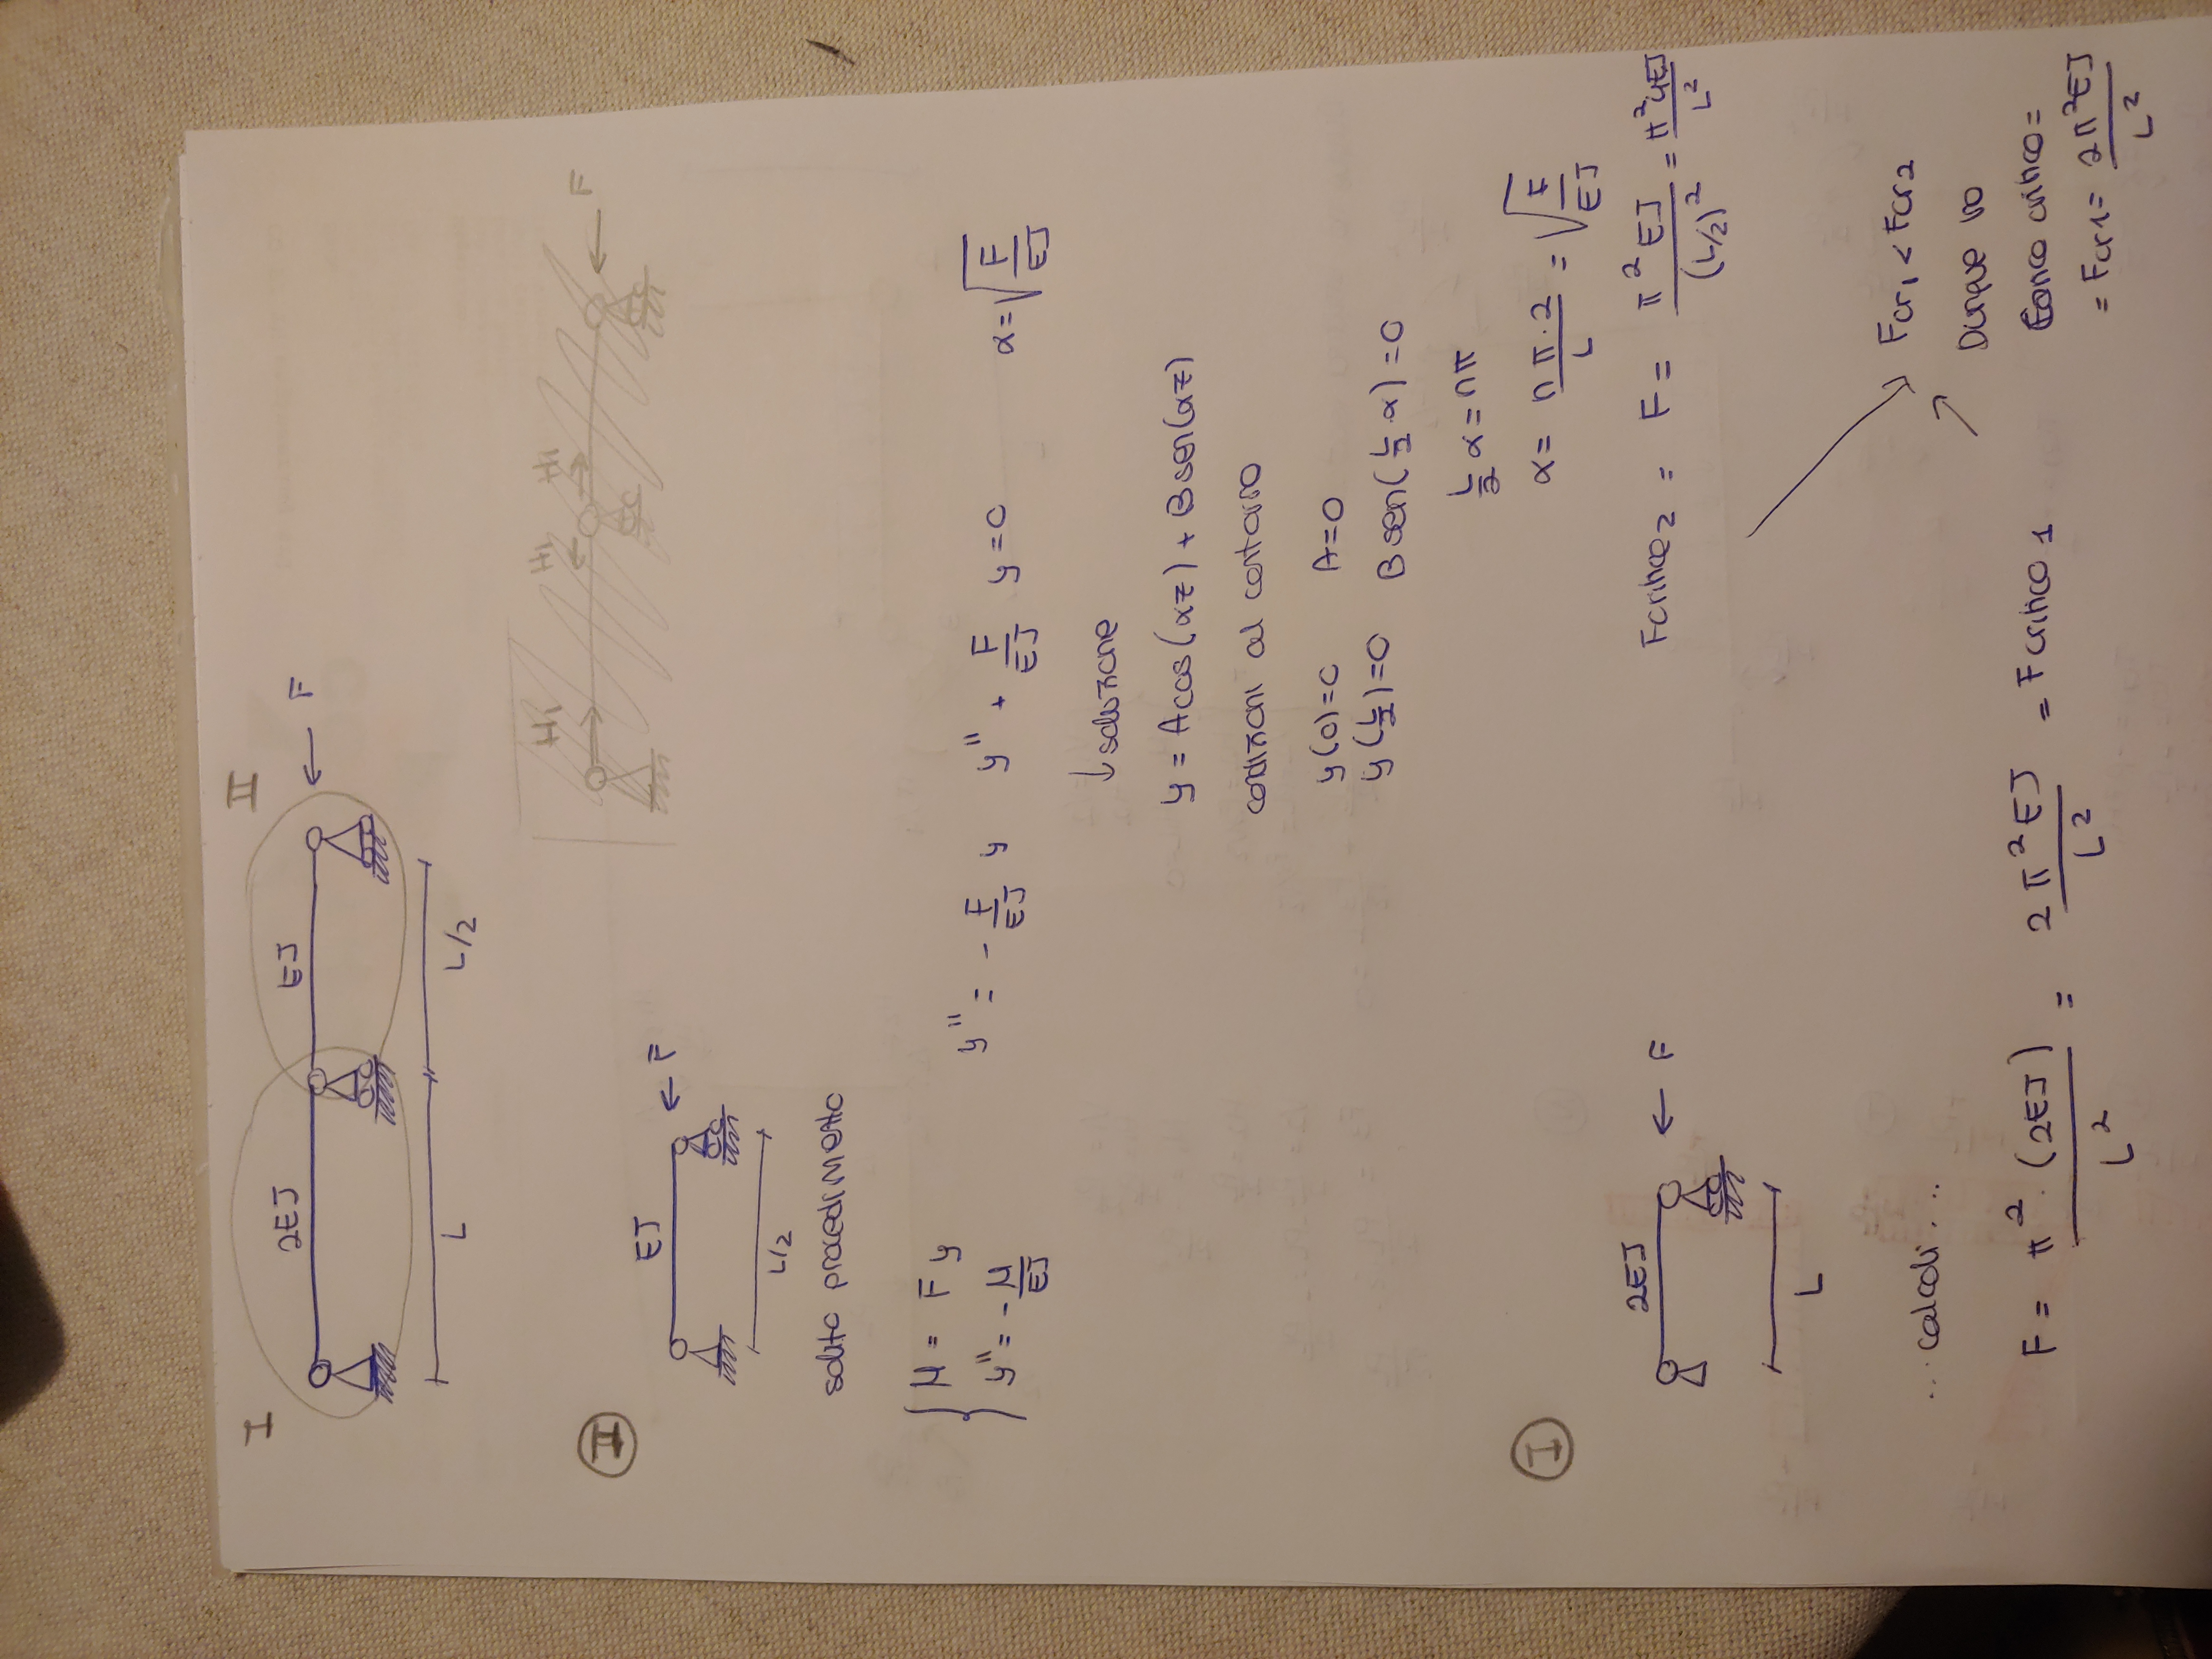 I II
2EJ EJ ← F
L L/2
H₁ H₁ H₁ F
II
EJ ← F
L/2
solito procedimento
M = Fy
y'' = -M/EJ
y'' = - F/EJ y y'' + F/EJ y = 0 α = √(F/EJ)
↓ soluzione
y = A cos(αz) + B sen(αz)
condizioni al contorno
y(0)=0 A=0
y(L/2)=0 B sen(L/2 α)=0
L/2 α = nπ
α = nπ·2/L = √(F/EJ)
I
2EJ ← F
L
Fcritico₂ = F = π²EJ/(L/2)² = π²4EJ/L²
...calcoli...
F = π²·(2EJ)/L² = 2π²EJ/L² = Fcritico 1
Fcr₁ < Fcr2
Dunque
critico =
= Fcr1 = 2π²EJ/L²